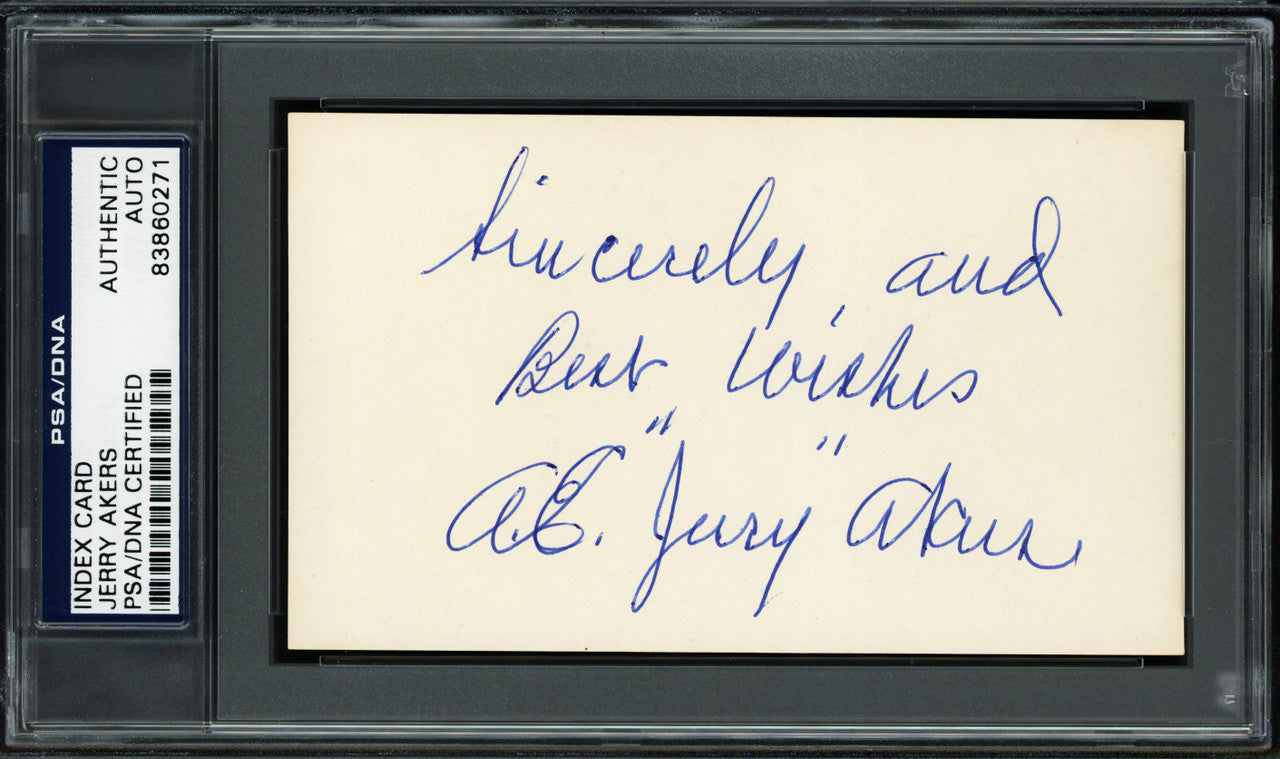 PSA/DNA
INDEX CARD
JERRY AKERS
PSA/DNA CERTIFIED
AUTHENTIC
AUTO
83860271
Sincerely, and
Best Wishes
A.E. "Jerry" Akers